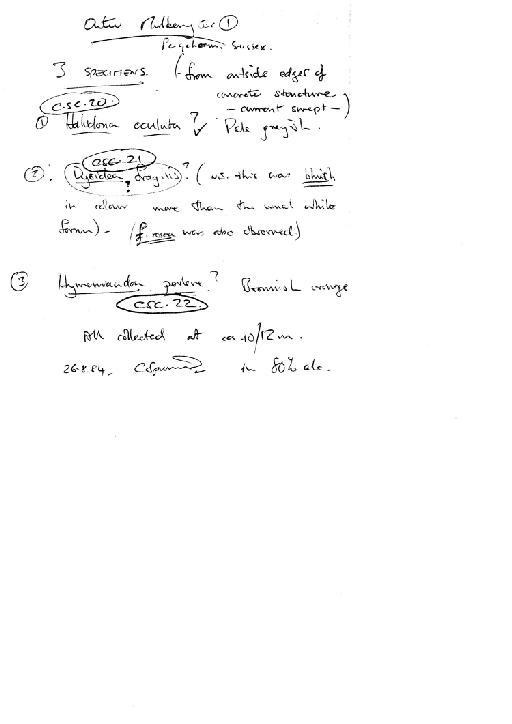 Outer Mulberry ①
Pagham, Sussex.
3 SPECIMENS. (from outside edges of
concrete structure
- current swept -)
C.SC.20
① Haliclona oculata? ✓ Pale greyish.
CSC.21
②: Dysidea fragilis? ? (n.b. this was bluish
in colour more than the usual white
form) - (P. was also observed)
③ Hymeniacidon perleve? Brownish orange
CSC.22
All collected at ca 10/12 m.
26.8.84. in 80% alc.